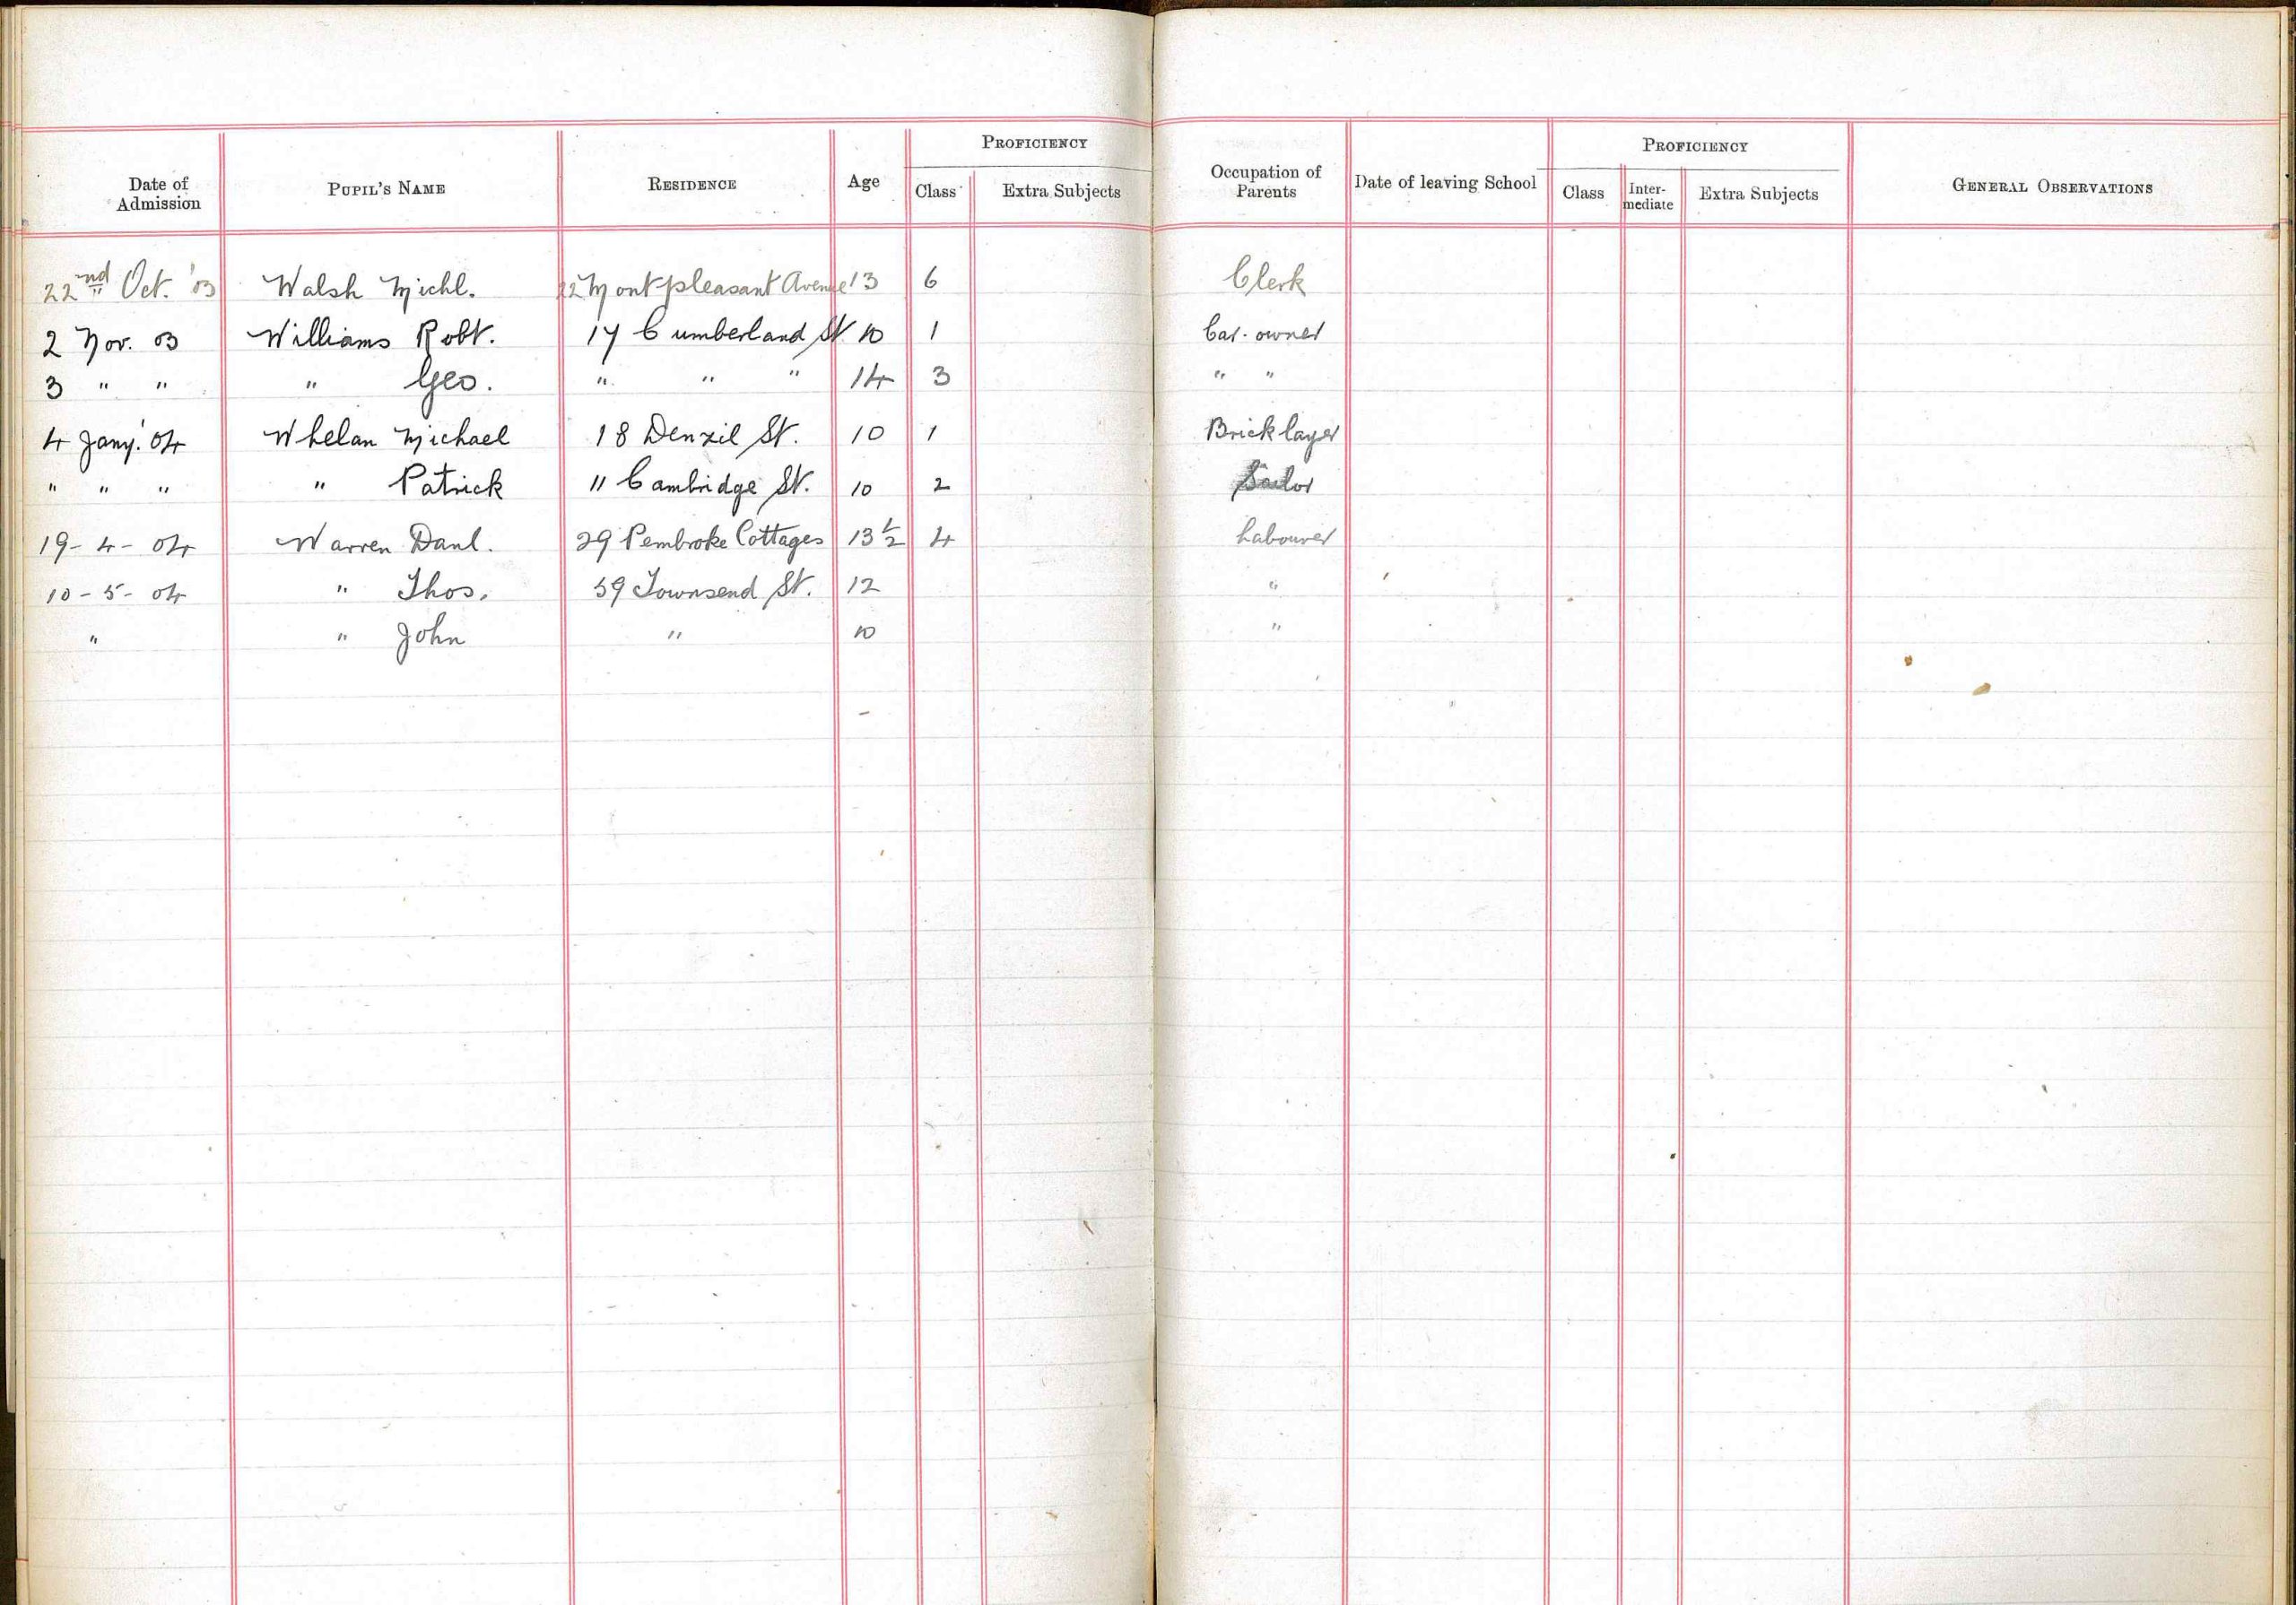 PROFICIENCY PROFICIENCY
Date of Admission PUPIL'S NAME RESIDENCE Age Class Extra Subjects Occupation of Parents Date of leaving School Class Inter-mediate Extra Subjects GENERAL OBSERVATIONS
22nd Oct. '03 Walsh Michl. 22 Montpleasant Avenue 13 6 Clerk
2 Nov. 03 Williams Robt. 17 Cumberland St. 10 1 Car-owner
3 " " " Geo. " " " 14 3 " "
4 Jany. '04 Whelan Michael 18 Denzil St. 10 1 Bricklayer
" " " " Patrick 11 Cambridge St. 10 2
19-4-04 Warren Danl. 29 Pembroke Cottages 13½ 4 Labourer
10-5-04 " Thos. 59 Townsend St. 12 "
" " John " 10 "